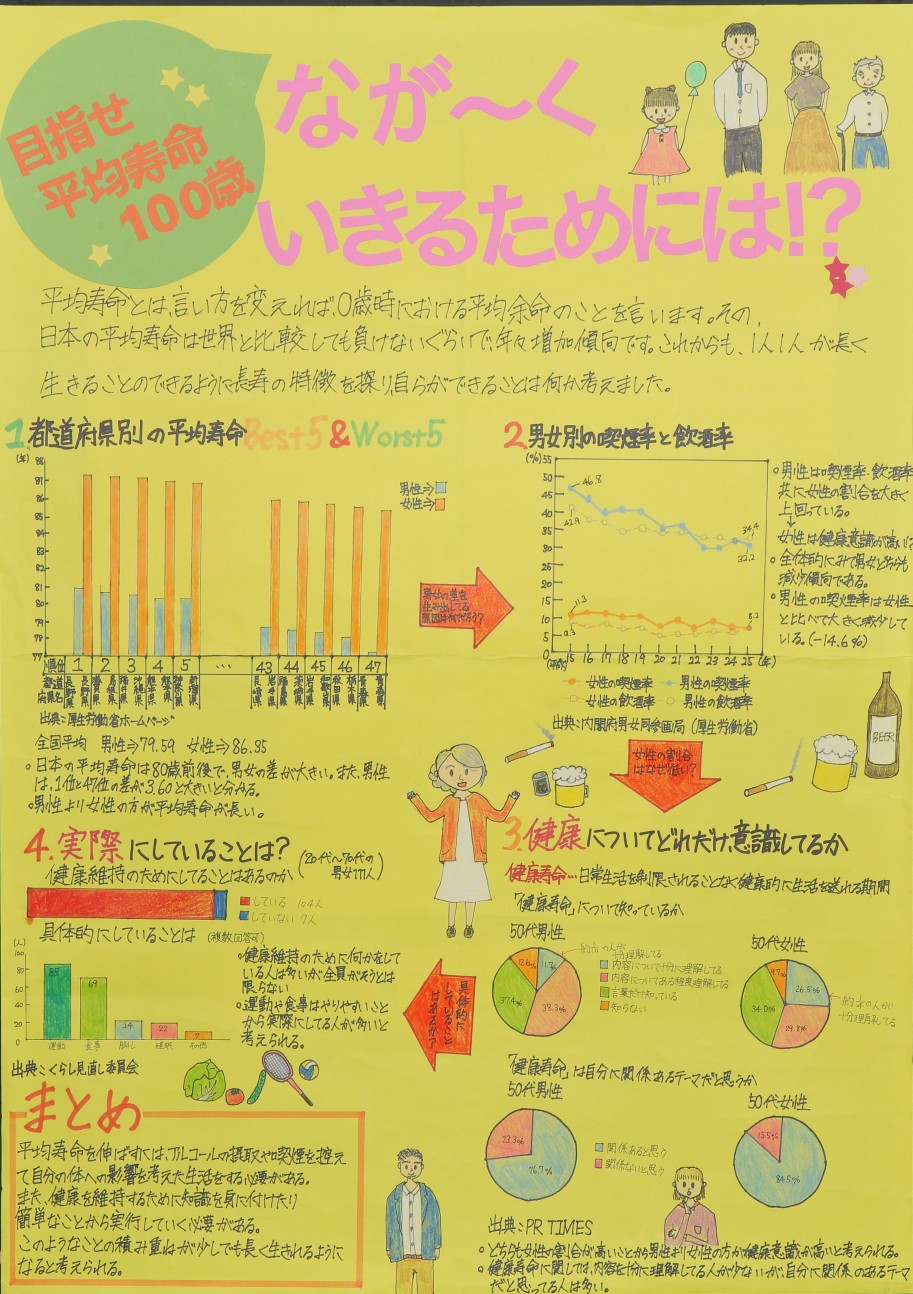 目指せ
平均寿命
100歳
なが～く
いきるためには!?
平均寿命とは、言い方を変えれば、0歳時における平均余命のことを言います。その、
日本の平均寿命は世界と比較しても負けないぐらいで、年々増加傾向です。これからも、1人1人が長く
生きることのできるように長寿の特徴を探り、自らができることは何か考えました。
1.都道府県別の平均寿命Best5&Worst5
(年)
男性⇒
女性⇒
順位 1 2 3 4 5 ... 43 44 45 46 47
都道府県名
出典:厚生労働省ホームページ
全国平均 男性⇒79.59 女性⇒86.35
日本の平均寿命は80歳前後で、男女の差が大きい。また、男性
は、1位と47位の差が3.60と大きいと分かる。
男性より女性の方が平均寿命が長い。
男女の差を
生み出してる
原因は何だろう?
2.男女別の喫煙率と飲酒率
(%)
55
50
45
40
35
30
25
20
15
10
5
0
46.8
42.9
34.4
32.2
11.3
8.2
(平成)15 16 17 18 19 20 21 22 23 24 25 (年)
女性の喫煙率 男性の喫煙率
女性の飲酒率 男性の飲酒率
出典:内閣府男女同参画局(厚生労働省)
男性は喫煙率・飲酒率
共に女性の割合を大きく
上回っている。
↓
女性は健康意識が高い?
全体的にみて男女どちらも
減少傾向である。
男性の喫煙率は女性
と比べて大きく減少して
いる。(-14.6%)
BEER
女性の割合
はなぜ低い?
3.健康についてどれだけ意識してるか
健康寿命…日常生活を制限されることなく健康的に生活を送れる期間
「健康寿命」について知っているか
50代男性
12.6%
11.7%
37.4%
38.3%
内容について十分に理解してる
内容についてある程度理解してる
言葉だけ知っている
知らない
50代女性
9.7%
26.5%
34.0%
29.8%
「健康寿命」は自分に関係あるテーマだと思うか
50代男性
23.3%
76.7%
関係あると思う
関係ないと思う
50代女性
15.5%
84.5%
出典:PR TIMES
どちらも女性の割合が高いことから男性より女性の方が健康意識が高いと考えられる。
健康寿命に関しては、内容を十分に理解してる人が少ないが、自分に関係のあるテーマ
だと思ってる人は多い。
具体的に
していること
はあるか?
4.実際にしていることは?
健康維持のためにしてることはあるのか
(20代～70代の
男女111人)
している 104人
していない 7人
具体的にしていることは (複数回答可)
(人)
100
80
60
40
20
0
85
69
24
22
運動
食事
睡眠
その他
健康維持のために何かをして
いる人は多いが全員がそうとは
限らない
運動や食事はやりやすいこと
から実際にしてる人が多いと
考えられる。
出典:くらし見直し委員会
まとめ
平均寿命を伸ばすには、アルコールの摂取や喫煙を控え
て自分の体への影響を考えた生活をする必要がある。
また、健康を維持するために知識を身に付けたり
簡単なことから実行していく必要がある。
このようなことの積み重ねが少しでも長く生きれるように
なると考えられる。